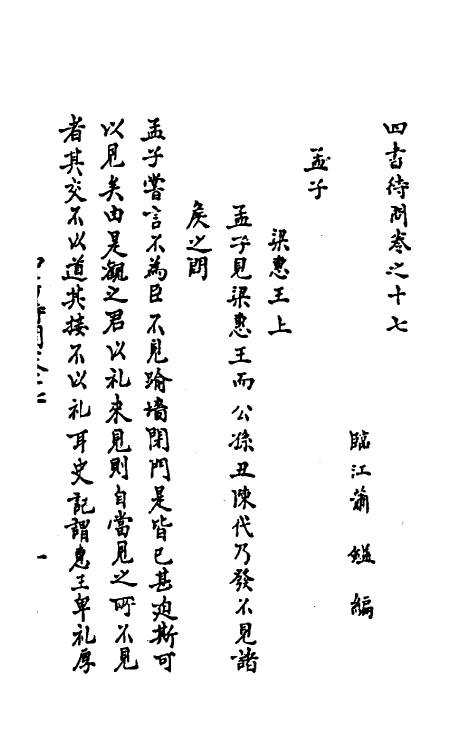 四書待問卷之十七
臨江蕭鎰編
孟子
梁惠王上
孟子見梁惠王而公孫丑陳代乃發不見諸
侯之問
孟子嘗言不為臣不見踰墻閉門是皆已甚迫斯可
以見矣由是觀之君以礼來見則自當見之所不見
者其交不以道其接不以礼耳史記謂惠王卑礼厚
一